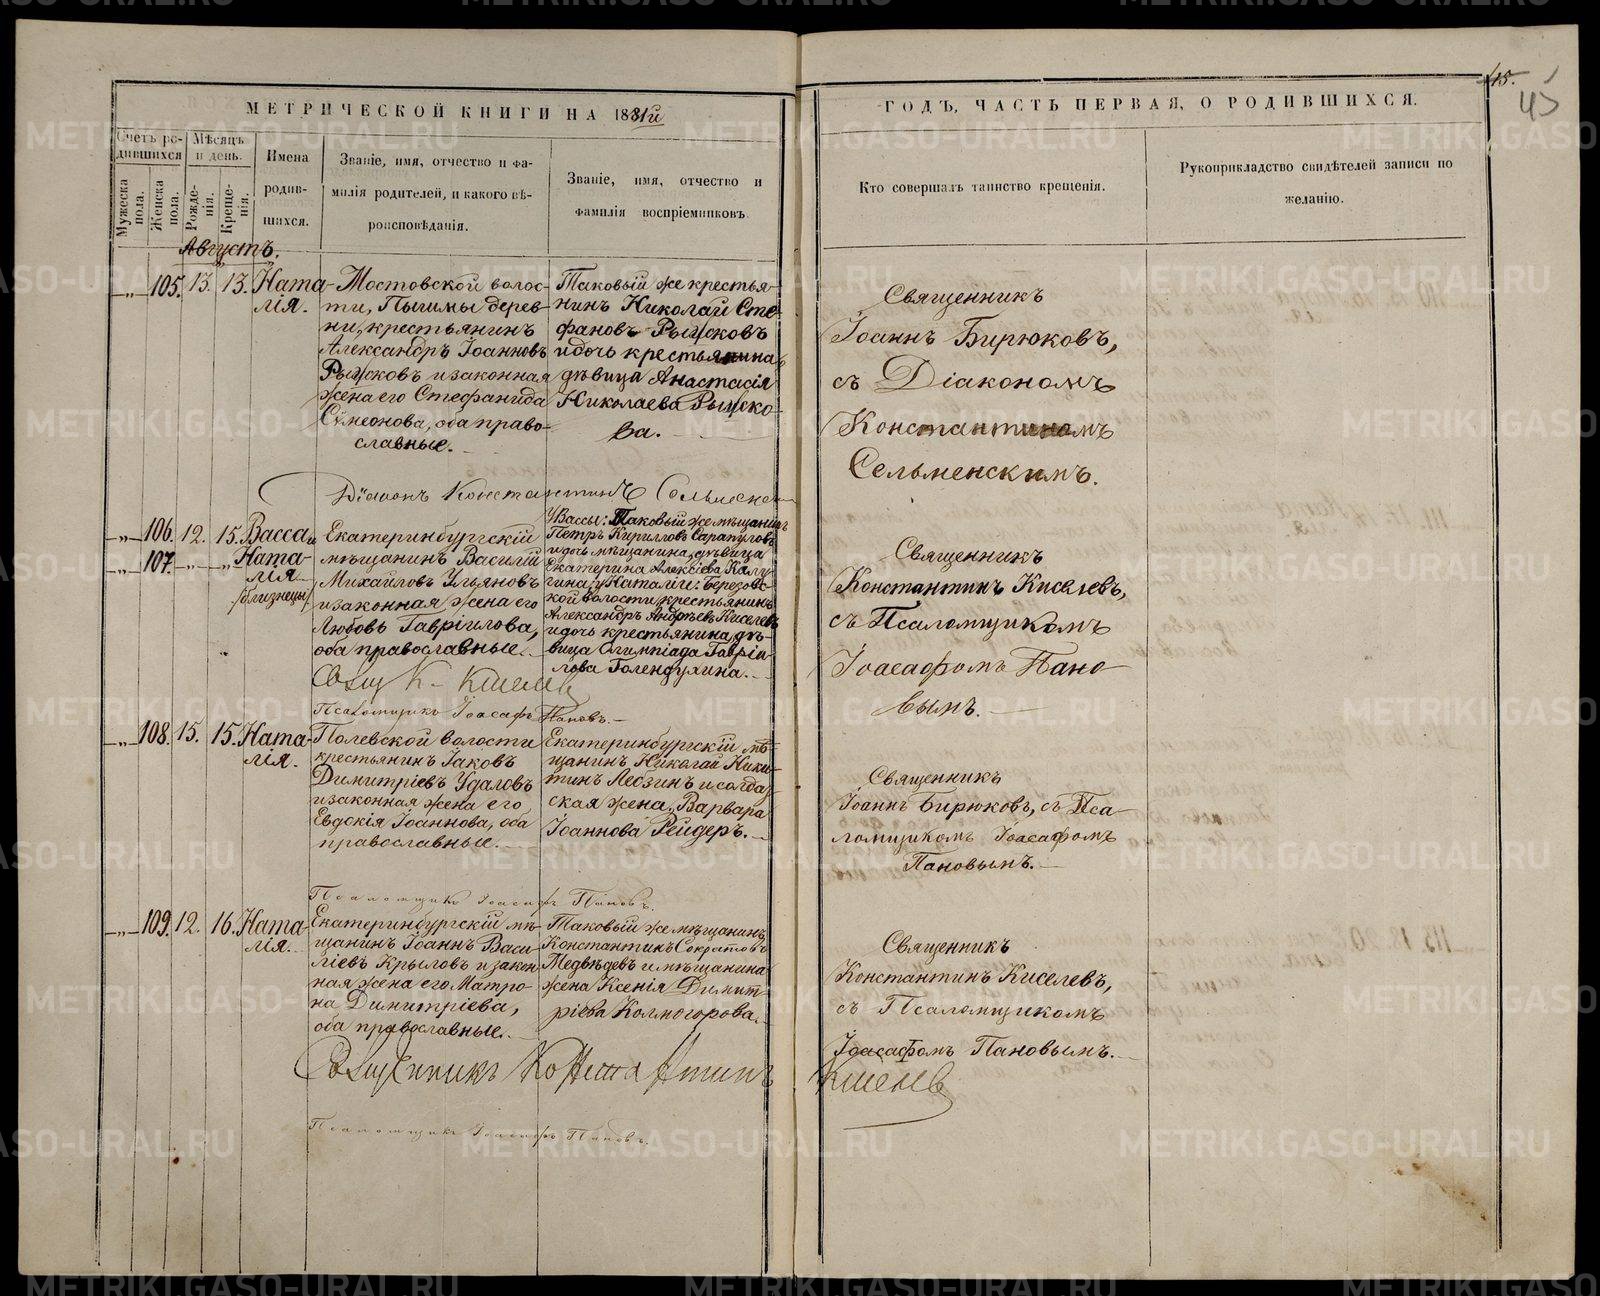 45.
45
МЕТРИЧЕСКОЙ КНИГИ НА 1881й
ГОДЪ, ЧАСТЬ ПЕРВАЯ, О РОДИВШИХСЯ.
Счетъ ро-
дившихся
Мѣсяцъ
и день.
Мужеска
пола.
Женска
пола.
Рожде-
нія.
Креще-
нія.
Имена
родив-
шихся.
Званіе, имя, отчество и фа-
милія родителей, и какого вѣ-
роисповѣданія.
Званіе, имя, отчество и
фамилія воспріемниковъ.
Кто совершалъ таинство крещенія.
Рукоприкладство свидѣтелей записи по
желанію.
Августъ.
„ 105. 13. 13.
Ната-
лія.
Мостовской волос-
ти, Пышмы дерев-
ни, крестьянинъ
Александръ Іоанновъ
и законная
жена его Стефанида
Сѵмеонова, оба право-
славные.
Таковый же крестья-
нинъ Николай Сте-
фановъ
и дочь крестьянина,
дѣвица Анастасія
Николаева
ва.
Священникъ
Іоаннъ Бирюковъ,
съ Діакономъ
Константиномъ
Сельменскимъ.
Діаконъ Константинъ Сельменскій
„ 106. 12. 15.
„ 107. „ „
Васса и
Ната-
лія
/близнецы/
Екатеринбургскій
мѣщанинъ Василій
Михайловъ Ульяновъ
и законная жена его
Любовь Гавріилова,
оба православные.
У Вассы: Таковый же мѣщанинъ
Петръ Кирилловъ Сарапуловъ
и дочь мѣщанина, дѣвица
Екатерина Алексіева Калу-
гина; у Наталіи: Березовс-
кой волости крестьянинъ
Александръ Андреевъ Киселевъ
и дочь крестьянина, дѣ-
вица Олимпіада Гавріи-
лова Голендухина.
Священникъ
Константинъ Киселевъ,
съ Псаломщикомъ
Іоасафомъ Пано-
вымъ.
Свящ К. Киселевъ
Псаломщикъ Іоасафъ Пановъ.
„ 108. 15. 15.
Ната-
лія.
Полевской волости
крестьянинъ Іаковъ
Димитріевъ Удаловъ
и законная жена его
Евдокія Іоаннова, оба
православные.
Екатеринбургскій мѣ-
щанинъ Николай Ники-
тинъ Лебзинъ и солдат-
ская жена, Варвара
Іоаннова Рейдеръ.
Священникъ
Іоаннъ Бирюковъ, съ Пса-
ломщикомъ Іоасафомъ
Пановымъ.
Псаломщикъ Іоасафъ Пановъ.
„ 109. 12. 16.
Ната-
лія.
Екатеринбургскій мѣ-
щанинъ Іоаннъ Васи-
ліевъ Крыловъ и закон-
ная жена его Матро-
на Димитріева,
оба православные.
Таковый же мѣщанинъ
Константинъ Сократовъ
Медвѣдевъ и мѣщанина
жена Ксенія Димит-
ріева Колногорова.
Священникъ
Константинъ Киселевъ,
съ Псаломщикомъ
Іоасафомъ Пановымъ.
Священникъ Константинъ Киселевъ
Псаломщикъ Іоасафъ Пановъ.
METRIKI.GASO-URAL.RU